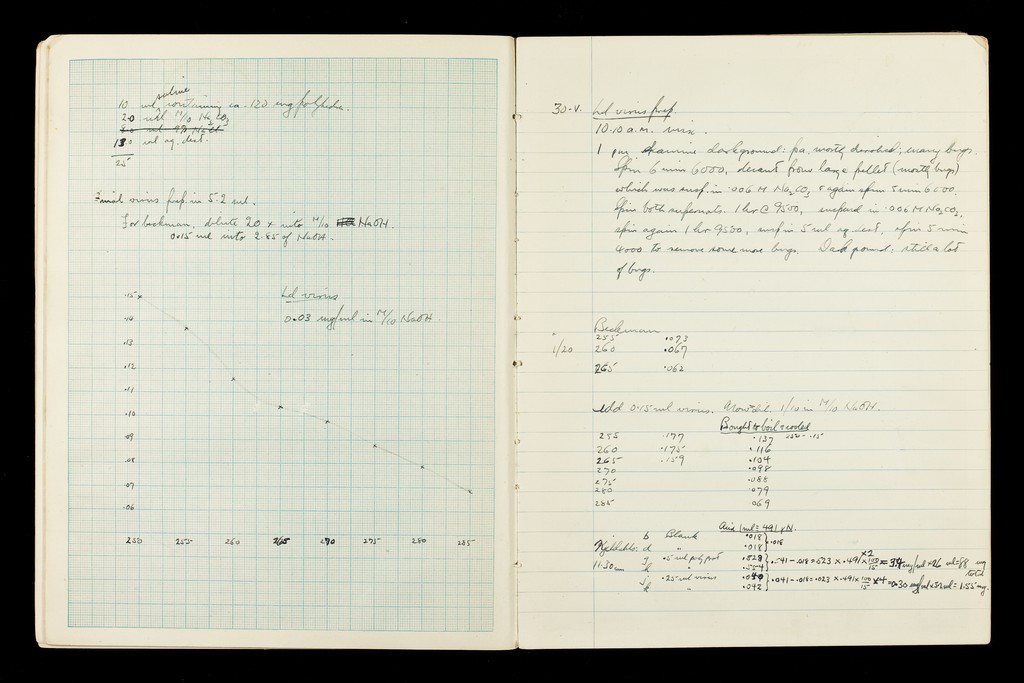 saline
10 ml containing ca. 120 mg polyhedra.
20 ml M/10 Na2CO3
130 ml aq. dest.
25
Final virus prep in 5.2 ml.
For beckman, dilute 20 x into M/10 NaOH.
0.15 ml into 2.85 of NaOH.
Ld virus
0.03 mg/ml in M/10 NaOH
.15
.14
.13
.12
.11
.10
.09
.08
.07
.06
250 255 260 265 270 275 280 285
30-V. Ld virus prep.
10.10 a.m. mix.
1 p.m. examine dark ground: pa. mostly dissolved; many bugs.
Spin 6 min 6000, decant from large pellet (mostly bugs)
which was susp. in .006 M Na2CO3 & again spun 5 min 6000.
Spin both supernats. 1 hr @ 9500, suspend in .006 M Na2CO3,
spin again 1 hr 9500, susp in 5 ml aq. dest, spin 5 min
4000 to remove some more bugs. Dark ground; still a lot
of bugs.
Beckman
255 .073
1/20 260 .067
265 .062
Add 0.15 ml virus. 1/10 in M/10 NaOH.
Bought to boil & cooled
255 .177 .137 250 - .15
260 .175 .116
265 .159 .104
270 .098
275 .088
280 .079
285 .069
Acid 1 ml = 491 γ N.
b Blank .018
Kjeldahls. d " .018 } .018
11.30 g .5 ml polyprot .528 } .541 - .018 = .523 x .491 x 100/15 x 2 = 34 mg/ml x 26 ml = 88 mg total
k "
g .25 ml virus .040 } .041 - .018 = .023 x .491 x 100/15 x 4 = 0.30 mg/ml x 5.2 ml = 1.55 mg.
k " .042